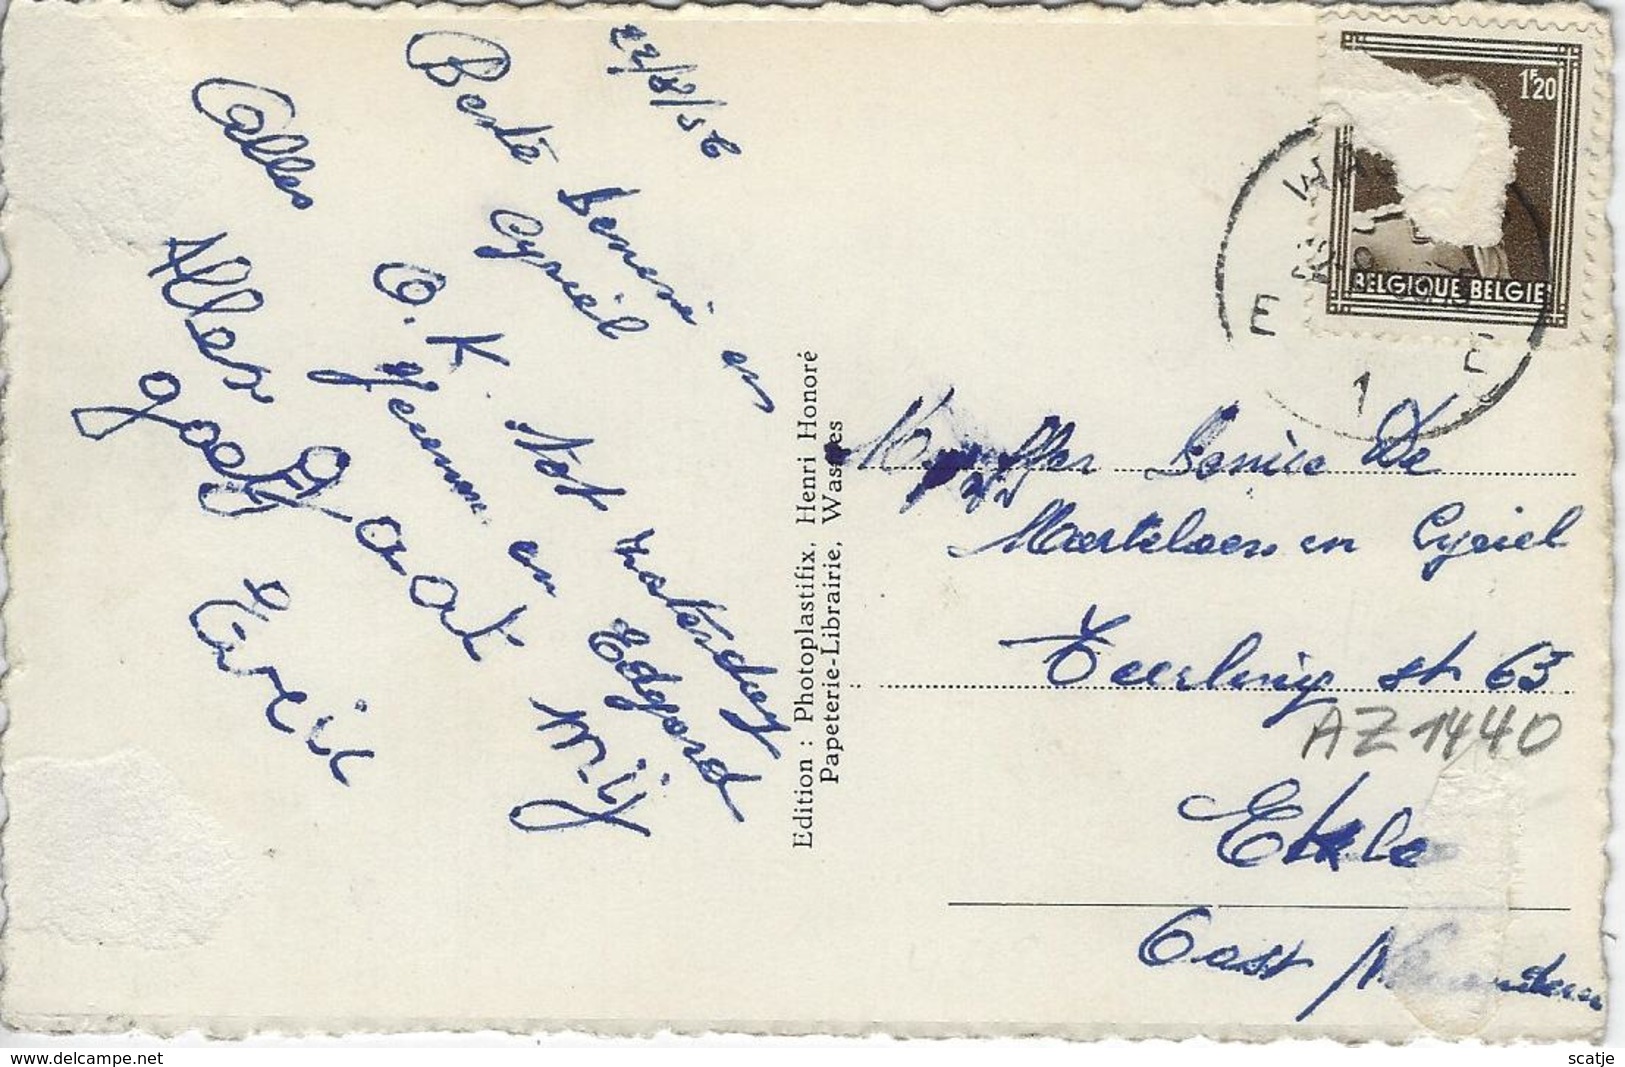 22/8/56
Beste Denise en
Cyriel
Alles O.K. Tot zaterdag
Jeanne en Edgard
Alles gaat
goed
mij
Eric
Edition : Photoplastifix, Henri Honoré
Papeterie-Librairie, Wasmes
1F20
BELGIQUE BELGIE
E
E
1
Denise De
Martelaere en Cyriel
Teerling st 63
AZ1440
Eekloo
Oost Vlaanderen
www.delcampe.net
scatje